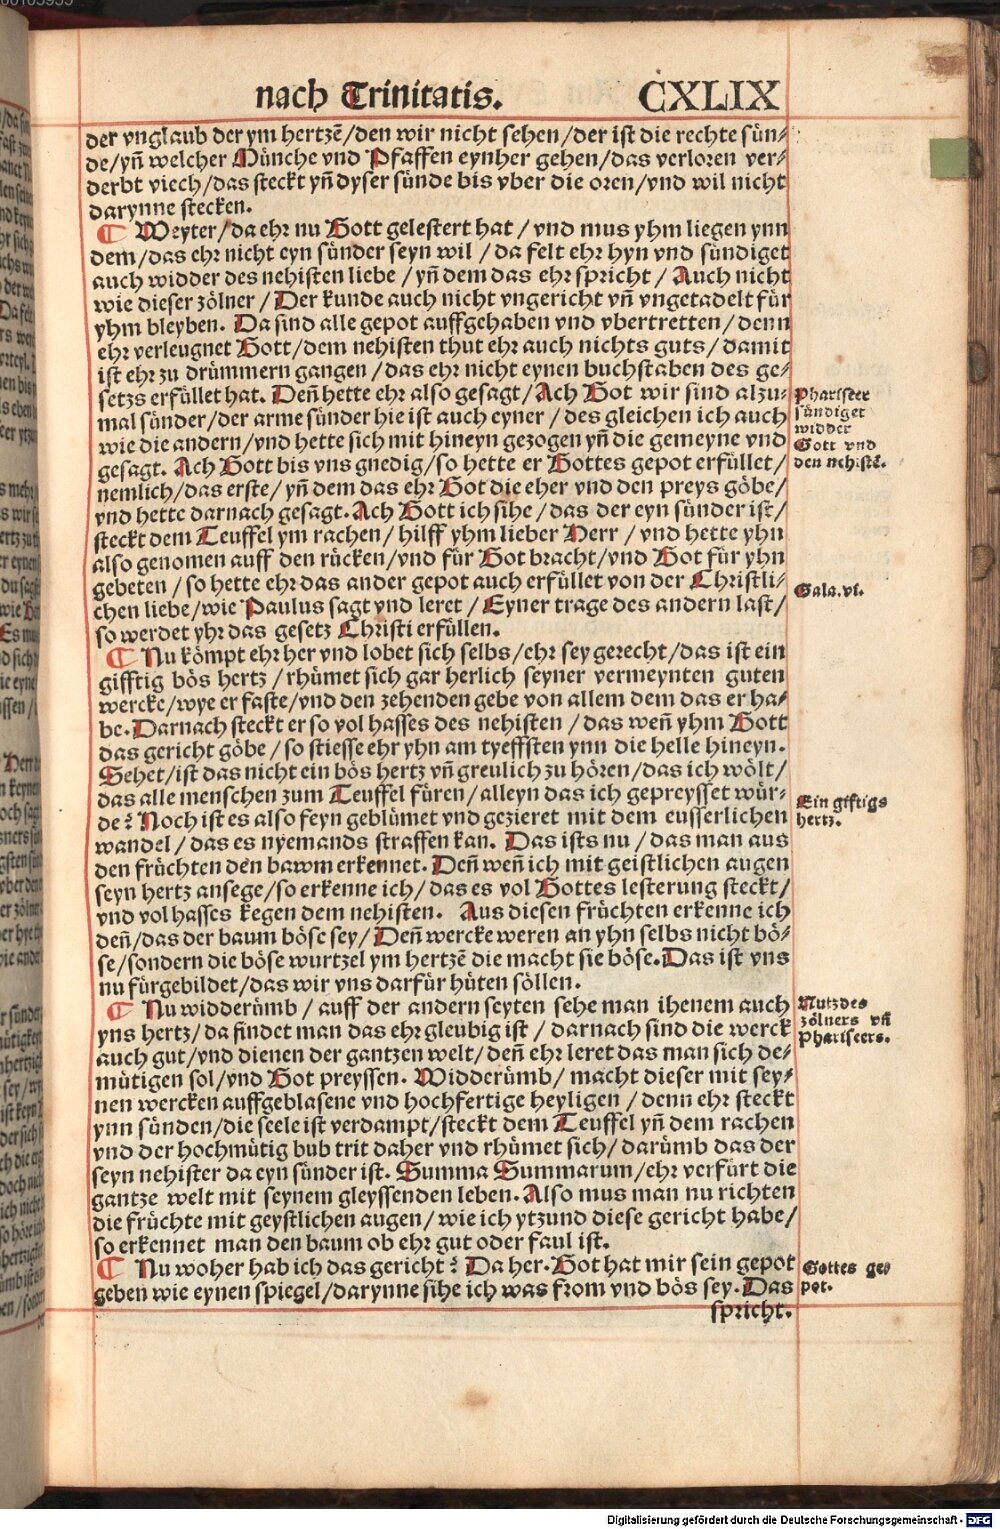 nach Trinitatis. CXLIX
der vnglaub der ym hertzē/den wir nicht sehen/der ist die rechte sün-
de/yñ welcher Münche vnd Pfaffen eynher gehen/das verloren ver-
derbt viech/das steckt yñ dyser sünde bis vber die oren/vnd wil nicht
darynne stecken.
¶ Weyter/da ehr nu Gott gelestert hat/vnd mus yhm liegen ynn
dem/das ehr nicht eyn sünder seyn wil/da felt ehr hyn vnd sündiget
auch widder des nehisten liebe/yñ dem das ehr spricht/Auch nicht
wie dieser zölner/Der kunde auch nicht vngericht vñ vngetadelt für
yhm bleyben. Da sind alle gepot auffgehaben vnd vbertretten/denn
ehr verleugnet Gott/dem nehisten thut ehr auch nichts guts/damit
ist ehr zu drümmern gangen/das ehr nicht eynen buchstaben des ge-
setzs erfüllet hat. Deñ hette ehr also gesagt/Ach Got wir sind alzu-
mal sünder/der arme sünder hie ist auch eyner/des gleichen ich auch
wie die andern/vnd hette sich mit hineyn gezogen yñ die gemeyne vnd
gesagt. Ach Gott bis vns gnedig/so hette er Gottes gepot erfüllet/
nemlich/das erste/yñ dem das ehr Got die eher vnd den preys göbe/
vnd hette darnach gesagt. Ach Gott ich sihe/das der eyn sünder ist/
steckt dem Teuffel ym rachen/hilff yhm lieber Herr/vnd hette yhn
also genomen auff den rücken/vnd für Got bracht/vnd Got für yhn
gebeten/so hette ehr das ander gepot auch erfüllet von der Christli-
chen liebe/wie Paulus sagt vnd leret/Eyner trage des andern last/
so werdet yhr das gesetz Christi erfüllen.
¶ Nu kömpt ehr her vnd lobet sich selbs/ehr sey gerecht/das ist ein
gifftig bös hertz/rhümet sich gar herlich seyner vermeynten guten
wercke/wye er faste/vnd den zehenden gebe von allem dem das er ha-
be. Darnach steckt er so vol hasses des nehisten/das weñ yhm Gott
das gericht göbe/so stiesse ehr yhn am tyeffsten ynn die helle hineyn.
Sehet/ist das nicht ein bös hertz vñ greulich zu hören/das ich wölt/
das alle menschen zum Teuffel füren/alleyn das ich gepreysset wür-
de? Noch ist es also feyn geblümet vnd gezieret mit dem eusserlichen
wandel/das es nyemands straffen kan. Das ists nu/das man aus
den früchten den bawm erkennet. Deñ weñ ich mit geistlichen augen
seyn hertz ansege/so erkenne ich/das es vol Gottes lesterung steckt/
vnd vol hasses kegen dem nehisten. Aus diesen früchten erkenne ich
deñ/das der baum böse sey/Deñ wercke weren an yhn selbs nicht bö-
se/sondern die böse wurtzel ym hertzē die macht sie böse. Das ist vns
nu fürgebildet/das wir vns darfür hüten söllen.
¶ Nu widderümb/auff der andern seyten sehe man ihenem auch
yns hertz/da findet man das ehr gleubig ist/darnach sind die werck
auch gut/vnd dienen der gantzen welt/deñ ehr leret das man sich de-
mütigen sol/vnd Got preyssen. Widderümb/macht dieser mit sey-
nen wercken auffgeblasene vnd hochfertige heyligen/denn ehr steckt
ynn sünden/die seele ist verdampt/steckt dem Teuffel yñ dem rachen
vnd der hochmütig bub trit daher vnd rhümet sich/darümb das der
seyn nehister da eyn sünder ist. Summa Summarum/ehr verfürt die
gantze welt mit seynem gleyssenden leben. Also mus man nu richten
die früchte mit geystlichen augen/wie ich ytzund diese gericht habe/
so erkennet man den baum ob ehr gut oder faul ist.
¶ Nu woher hab ich das gericht? Da her. Got hat mir sein gepot
geben wie eynen spiegel/darynne sihe ich was from vnd bös sey. Das
spricht.
Phariseer
sündiget
widder
Gott vnd
den nehistē.
Gala.vi.
Ein giftigs
hertz.
Nutz des
zölners vñ
Phariseers.
Gottes ge-
pot.
Digitalisierung gefördert durch die Deutsche Forschungsgemeinschaft - DFG